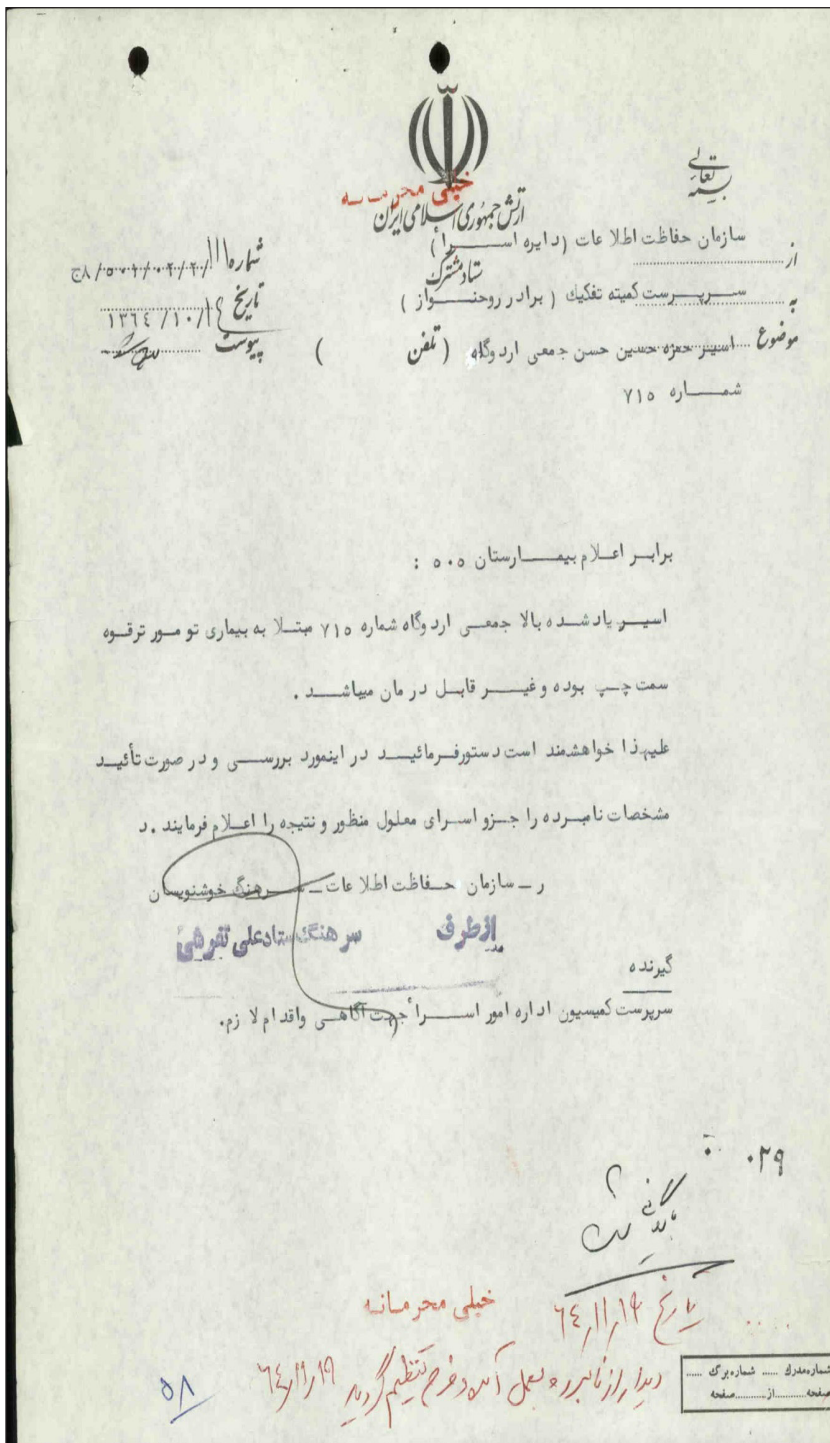 بسمه تعالی
خیلی محرمانه
ارتش جمهوری اسلامی ایران
ستاد مشترک
از سازمان حفاظت اطلاعات (دایره اسرا)
به سرپرست کمیته تفکیک (برادر روحنواز)
موضوع اسیر حمزه حسین حسن جمعی اردوگاه (تلفن )
شماره ۷۱۵
شماره
تاریخ ۱۳۶۴/۱۰/
پیوست
برابر اعلام بیمارستان ۵۰۵ :
اسیر یاد شده بالا جمعی اردوگاه شماره ۷۱۵ مبتلا به بیماری تومور ترقوه
سمت چپ بوده و غیر قابل درمان میباشد .
علیهذا خواهشمند است دستور فرمائید در اینمورد بررسی و در صورت تأئید
مشخصات نامبرده را جزو اسرای معلول منظور و نتیجه را اعلام فرمایند . د
ر ـ سازمان حفاظت اطلاعات ـ سرهنگ خوشنویسان
از طرف سرهنگ ستاد علی تفرشی
گیرنده
سرپرست کمیسیون اداره امور اسرا جهت آگاهی و اقدام لازم.
۰۳۹
بایگانی شود
تاریخ ۶۴/۱۱/۱۹
خیلی محرمانه
دیدار از نامبرده بعمل آمده و فرم تنظیم گردید ۶۴/۱۱/۱۹
۵۸
شماره مدرک ..... شماره برگ .....
صفحه ..... از ..... صفحه